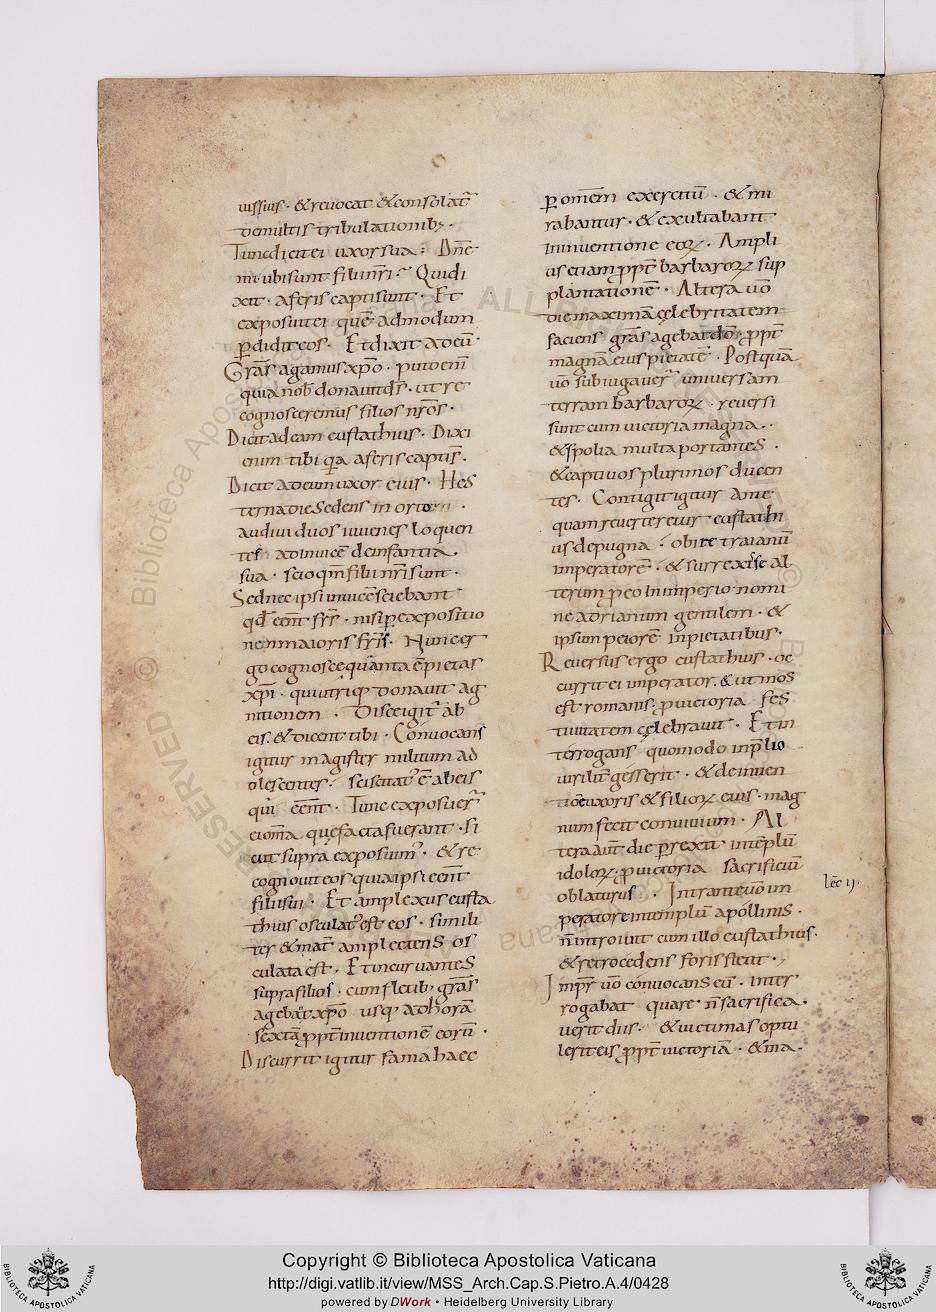 uissuis · & reuocat & consolat᷑
de multis tribulationib; ·
Tunc dicit ei uxor sua : Dn̄e
mi · ubi sunt filii nr̄i · Quid i
xit · a feris capti sunt · Et
exposuit ei quē admodum
ꝑdidit eos · Et dixit ad eū ·
Gr̄as agamus xp̄o · puto eni̅
quia nob̅ donauit ds̅ · ut re
cognosceremus filios nr̄os ·
Dicit ad eam eustathius · Dixi
enim tibi qa a feris capti s̅ ·
Dicit ad eum uxor eius · Hes
terna die sedens in orto
audiui duos iuuenes loquen
tes adinuicē de infantia
sua · scio qm̅ filii nr̄i sunt ·
Sed nec ipsi inuicē sciebant
qd̅ eent fr̄s · nisi ꝑ expositio
nem maioris fr̄is · Nunc er
go cognosce quanta ē pietas
xp̄i · qui utriq; donauit ag
nitionem · Disce igit᷑ ab
eis · & dicent tibi · Conuocans
igitur magister militum ad
olescentes · sciscitat᷑ ē ab eis
qui eēnt · Tunc exposuer᷑
ei om̅a que facta fuerant · si
cut supra exposuim᷑ · & re
cognouit eos quia ipsi eēnt
filii sui · Et amplexus eusta
thius osculat᷑ est eos · simili
ter & mat᷑ amplectens os
culata est · Et incuruantes
supra filios · cum fletib; gr̄as
agebāt xp̄o usq; ad horā
sextā ꝓpt̅ inuentionē eorū ·
Discurrit igitur fama haec
ꝑ om̅em exercitū · & mi
rabantur · & exultabant
in inuentione eoꝝ · Ampli
us etiam ꝓpt̅ barbaroꝝ sup
plantationē · Altera uō
die maximā celebritatem
faciens gr̄as agebat dō · ꝓpt̅
magnā eius pietatē · Postquā
uō subiugauer᷑ uniuersam
terram barbaroꝝ · reuersi
sunt cum uictoria magna ·
& spolia multa portantes ·
& captiuos plurimos ducen
tes · Contigit igitur ante
quam reuerteretur eustathi
us de pugna · obire traianū
imperatorē · & surrexisse al
terum ꝓ eo in imperio nomi
ne adrianum gentilem · &
ipsum peiorē in pietatibus ·
Reuersus ergo eustathius · oc
currit ei imperator · & ut mos
est romanis · ꝓ uictoria fes
tiuitatem celebrauit · Et in
terrogans quomodo in p̅lio
uirilit᷑ gesserit · & de inuen
tiōe uxoris & filioꝝ eius · mag
num fecit conuiuium · Al
tera aut̅ die ꝑrexit in tēplū
idoloꝝ · ꝓ uictoria sacrificiū
oblaturus · Intrante uō im
peratore in templū apollinis ·
n̅ introiuit cum illo eustathius ·
& retrocedens foris stetit ·
Impr̅ uō conuocans eū · inter
rogabat quare n̅ sacrifica
uerit diis · & uictimas optu
lerit eis ꝓpt̅ uictoriā · & ma
lēc ii ·
Copyright © Biblioteca Apostolica Vaticana
http://digi.vatlib.it/view/MSS_Arch.Cap.S.Pietro.A.4/0428
powered by DWork • Heidelberg University Library